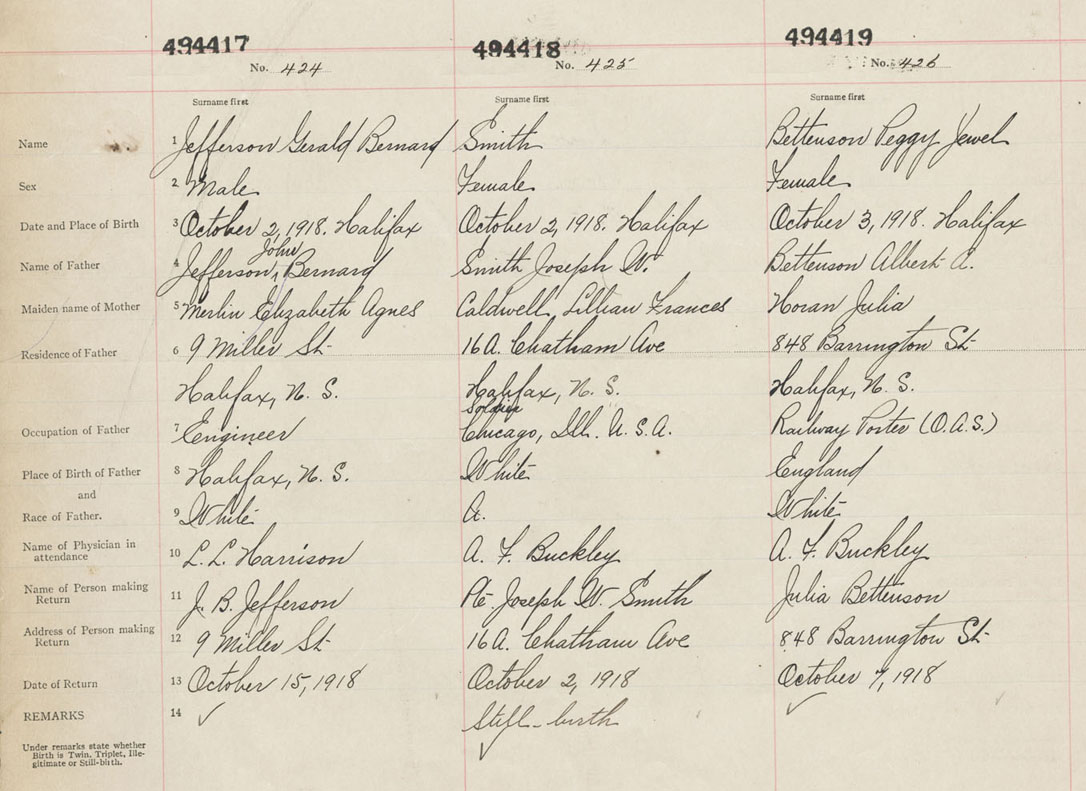 494417 494418 494419
No. 424 No. 425 No. 426
Surname first Surname first Surname first
Name 1 Jefferson Gerald Bernard Smith Bettenson Peggy Jewel
Sex 2 Male Female Female
Date and Place of Birth 3 October 2, 1918. Halifax October 2, 1918. Halifax October 3, 1918. Halifax
John
Name of Father 4 Jefferson, Bernard Smith Joseph W. Bettenson Albert A.
Maiden name of Mother 5 Merlin Elizabeth Agnes Caldwell, Lillian Frances Horan Julia
Residence of Father 6 9 Miller St 16A. Chatham Ave 848 Barrington St
Halifax, N. S. Halifax, N. S. Halifax, N. S.
Soldier
Occupation of Father 7 Engineer Chicago, Ill. U. S. A. Railway Porter (O.A.S.)
Place of Birth of Father 8 Halifax, N. S. White England
and
Race of Father. 9 White A. White
Name of Physician in
attendance 10 L. L. Harrison A. F. Buckley A. F. Buckley
Name of Person making
Return 11 J. B. Jefferson Pte Joseph W. Smith Julia Bettenson
Address of Person making
Return 12 9 Miller St 16A. Chatham Ave 848 Barrington St
Date of Return 13 October 15, 1918 October 2, 1918 October 7, 1918
REMARKS 14 ✓ Still-birth ✓
✓
Under remarks state whether
Birth is Twin, Triplet, Ille-
gitimate or Still-birth.